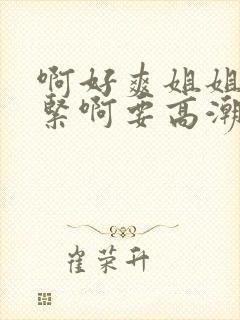 啊好爽姐姐
紧啊要高潮
崔荣升